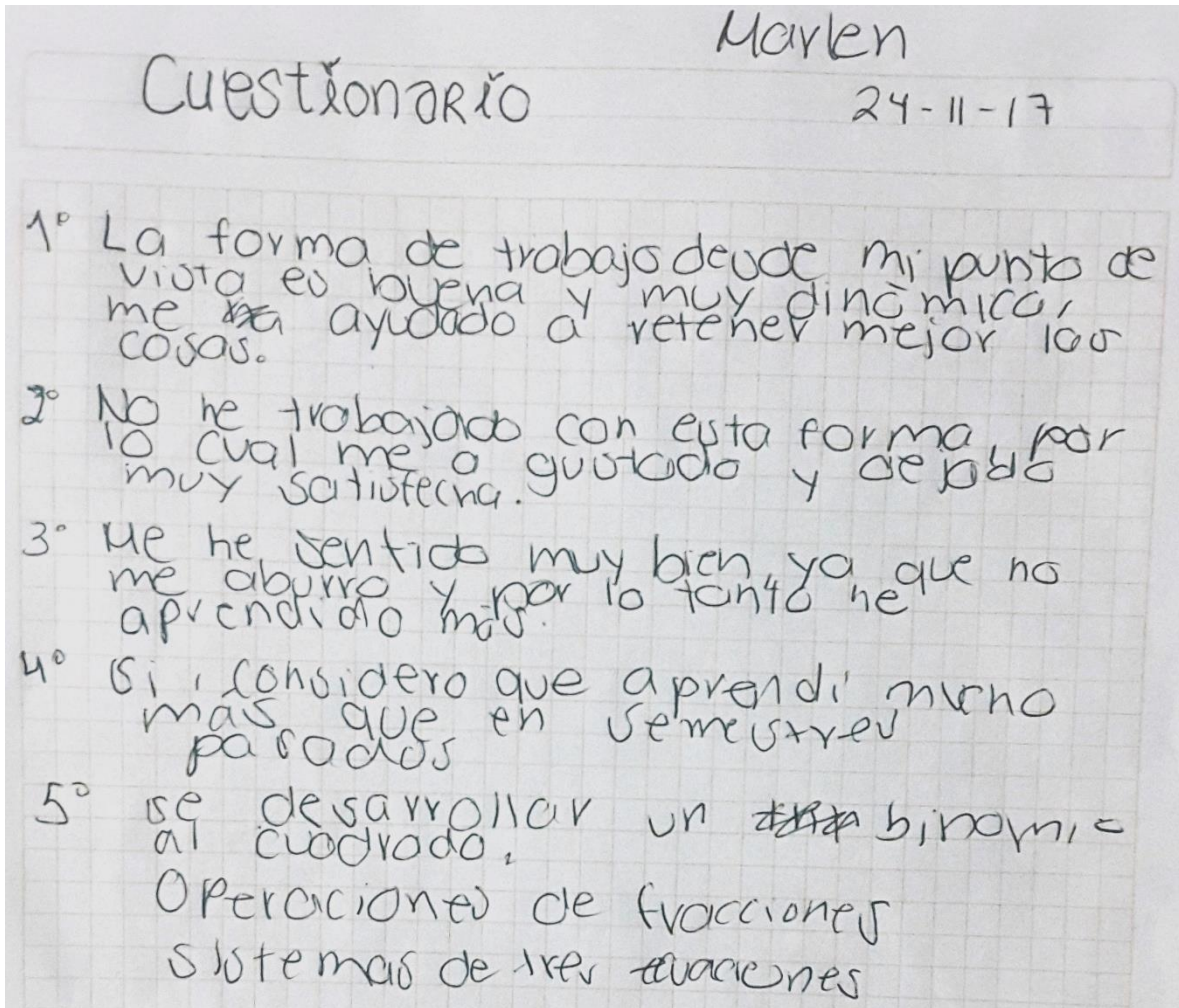 Marlen
Cuestionario
24-11-17
1° La forma de trabajo desde mi punto de
vista es buena y muy dinámica,
me ha ayudado a retener mejor las
cosas.
2° No he trabajado con esta forma, por
lo cual me a gustado y dejado
muy satisfecha.
3° Me he sentido muy bien, ya que no
me aburro y por lo tanto he
aprendido más.
4° Si, considero que aprendí mucho
más que en semestres
pasados
5° se desarrollar un binomio
al cuadrado.
Operaciones de fracciones
sistemas de tres ecuaciones